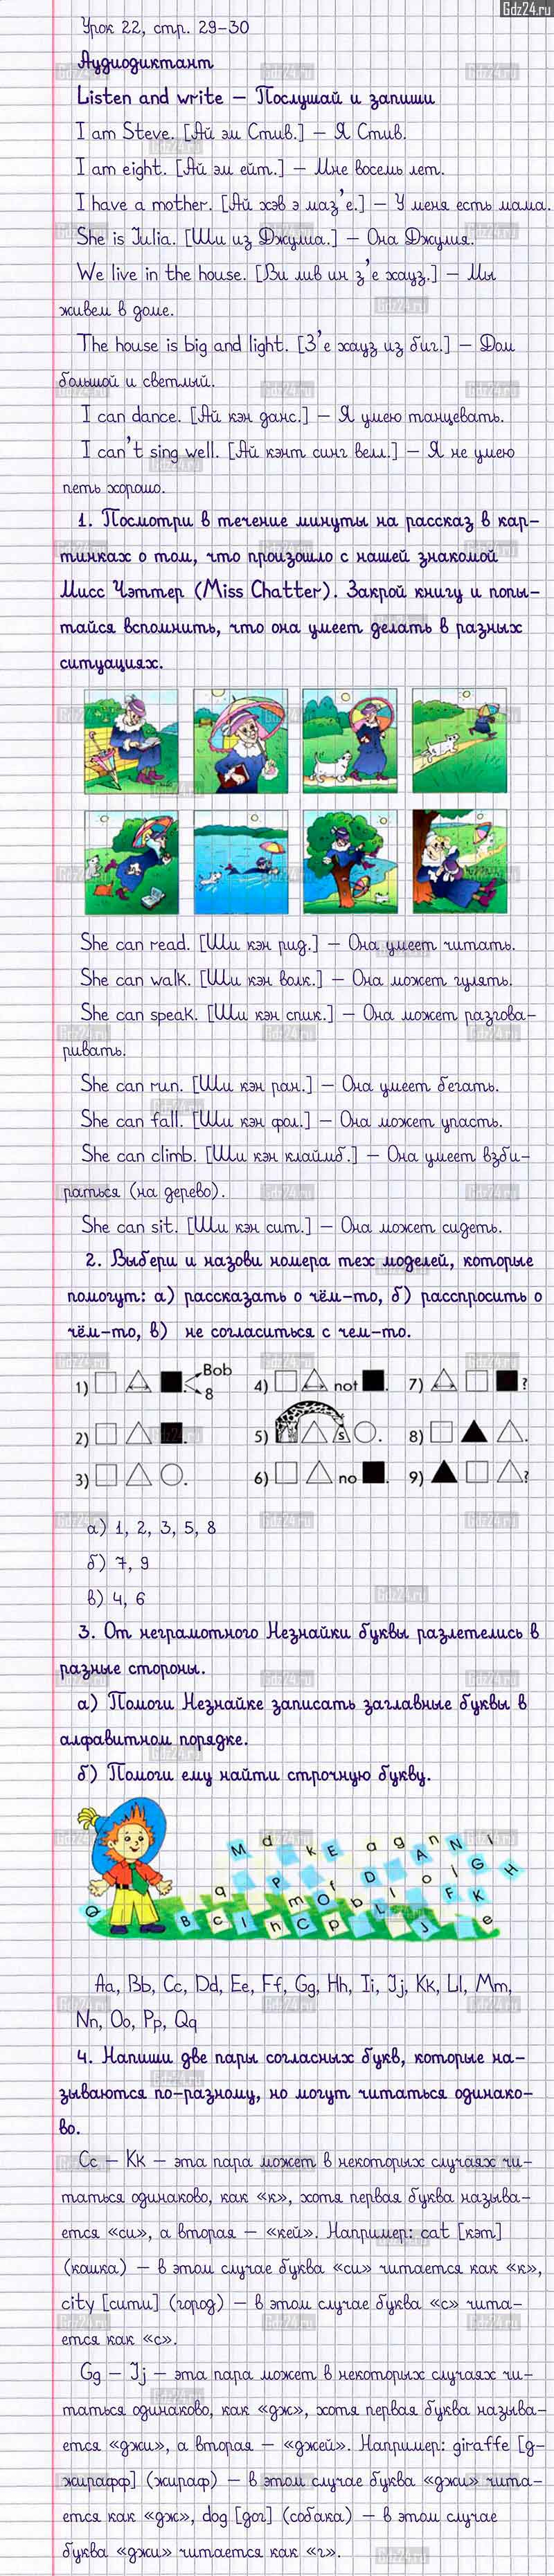 Gdz24.ru
Урок 22, стр. 29-30
Аудиодиктант
Listen and write – Послушай и запиши
I am Steve. [Ай эм Стив.] – Я Стив.
I am eight. [Ай эм ейт.] – Мне восемь лет.
I have a mother. [Ай хэв э маз'е.] – У меня есть мама.
She is Julia. [Ши из Джулиа.] – Она Джулия.
We live in the house. [Ви лив ин з'е хауз.] – Мы
живем в доме.
The house is big and light. [З'е хауз из биг.] – Дом
большой и светлый.
I can dance. [Ай кэн данс.] – Я умею танцевать.
I can't sing well. [Ай кэнт синг велл.] – Я не умею
петь хорошо.
1. Посмотри в течение минуты на рассказ в кар-
тинках о том, что произошло с нашей знакомой
Мисс Чэттер (Miss Chatter). Закрой книгу и попы-
тайся вспомнить, что она умеет делать в разных
ситуациях.
She can read. [Ши кэн рид.] – Она умеет читать.
She can walk. [Ши кэн волк.] – Она может гулять.
She can speak. [Ши кэн спик.] – Она может разгова-
ривать.
She can run. [Ши кэн ран.] – Она умеет бегать.
She can fall. [Ши кэн фол.] – Она может упасть.
She can climb. [Ши кэн клаймб.] – Она умеет взби-
раться (на дерево).
She can sit. [Ши кэн сит.] – Она может сидеть.
2. Выбери и назови номера тех моделей, которые
помогут: а) рассказать о чём-то, б) расспросить о
чём-то, в) не согласиться с чем-то.
1) . Bob 8 4) not . 7) ?
2) . 5) s . 8) .
3) . 6) no . 9) ?
а) 1, 2, 3, 5, 8
б) 7, 9
в) 4, 6
3. От неграмотного Незнайки буквы разлетелись в
разные стороны.
а) Помоги Незнайке записать заглавные буквы в
алфавитном порядке.
б) Помоги ему найти строчную букву.
M d k E a g A n N l
q P m O f D o i G H
Q B c l h C p b L l J F K e
Aa, Bb, Cc, Dd, Ee, Ff, Gg, Hh, Ii, Jj, Kk, Ll, Mm,
Nn, Oo, Pp, Qq
4. Напиши две пары согласных букв, которые на-
зываются по-разному, но могут читаться одинако-
во.
Cc – Kk – эта пара может в некоторых случаях чи-
таться одинаково, как «к», хотя первая буква называ-
ется «си», а вторая – «кей». Например: cat [кэт]
(кошка) – в этом случае буква «си» читается как «к»,
city [сити] (город) – в этом случае буква «с» чита-
ется как «с».
Gg – Jj – эта пара может в некоторых случаях чи-
таться одинаково, как «дж», хотя первая буква называ-
ется «джи», а вторая – «джей». Например: giraffe [д-
жирафф] (жираф) – в этом случае буква «джи» чита-
ется как «дж», dog [дог] (собака) – в этом случае
буква «джи» читается как «г».